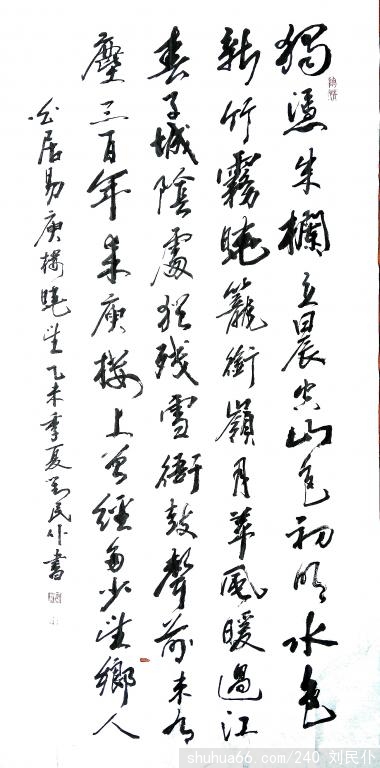 獨憑朱欄立晨空山色初明水色
新竹霧曉籠銜嶺月苹風暖過江
春子城陰處猶殘雪衙鼓聲前未有
塵三百年來庾樓上曾經多少望鄉人
白居易庾樓曉望乙未季夏劉民仆書
shuhua66.com/240 刘民仆